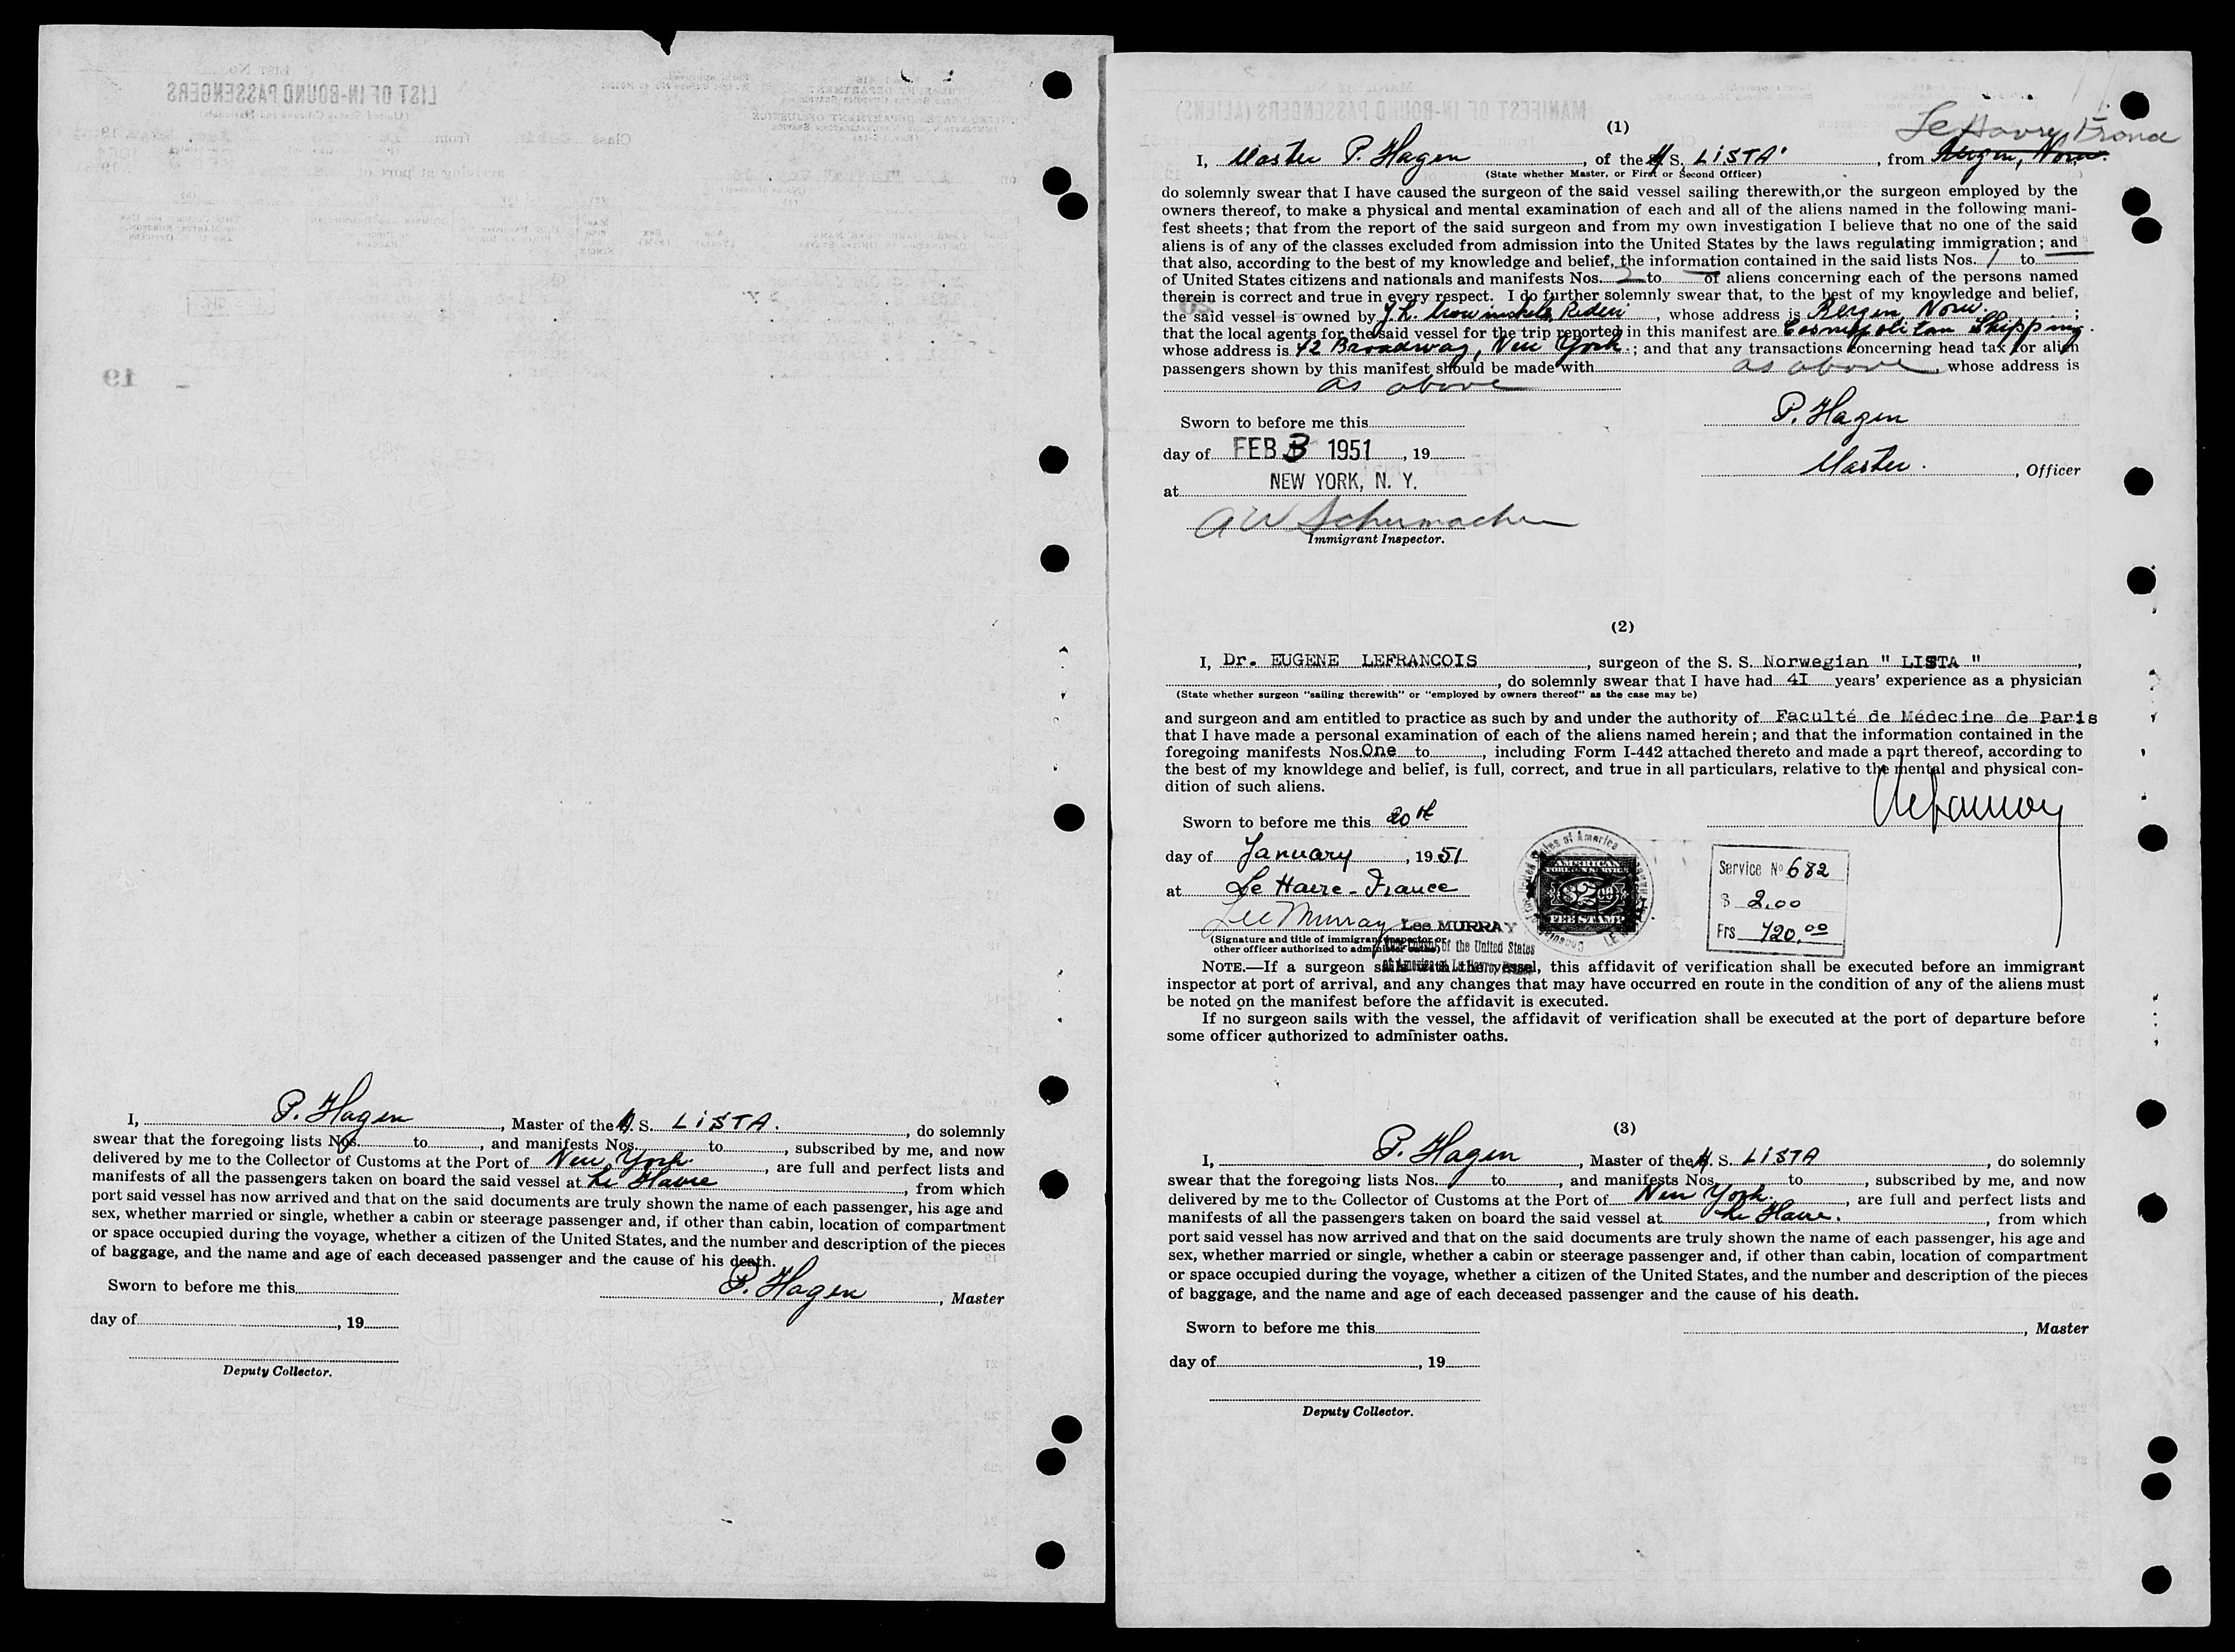 I, P. Hagen, Master of the M. S. LISTA., do solemnly
swear that the foregoing lists Nos. to , and manifests Nos. to , subscribed by me, and now
delivered by me to the Collector of Customs at the Port of New York., are full and perfect lists and
manifests of all the passengers taken on board the said vessel at Le Havre, from which
port said vessel has now arrived and that on the said documents are truly shown the name of each passenger, his age and
sex, whether married or single, whether a cabin or steerage passenger and, if other than cabin, location of compartment
or space occupied during the voyage, whether a citizen of the United States, and the number and description of the pieces
of baggage, and the name and age of each deceased passenger and the cause of his death.
Sworn to before me this
P. Hagen, Master
day of , 19
Deputy Collector.
(1)
Le Havre, France
I, Master P. Hagen, of the M S. LISTA, from Bergen, Norw.
(State whether Master, or First or Second Officer)
do solemnly swear that I have caused the surgeon of the said vessel sailing therewith, or the surgeon employed by the
owners thereof, to make a physical and mental examination of each and all of the aliens named in the following mani-
fest sheets; that from the report of the said surgeon and from my own investigation I believe that no one of the said
aliens is of any of the classes excluded from admission into the United States by the laws regulating immigration; and
that also, according to the best of my knowledge and belief, the information contained in the said lists Nos. 1 to —
of United States citizens and nationals and manifests Nos. 2 to — of aliens concerning each of the persons named
therein is correct and true in every respect. I do further solemnly swear that, to the best of my knowledge and belief,
the said vessel is owned by J. L. Rederi, whose address is Bergen, Norw. ;
that the local agents for the said vessel for the trip reported in this manifest are Cosmopolitan Shipping.
whose address is 42 Broadway, New York.; and that any transactions concerning head tax for alien
passengers shown by this manifest should be made with as above, whose address is
as above
Sworn to before me this
P. Hagen
day of FEB 3 1951, 19
Master., Officer
at NEW YORK, N. Y.
A W Schumacher
Immigrant Inspector.
(2)
I, Dr. EUGENE LEFRANCOIS, surgeon of the S. S. Norwegian " LISTA ",
, do solemnly swear that I have had 4I years' experience as a physician
(State whether surgeon "sailing therewith" or "employed by owners thereof" as the case may be)
and surgeon and am entitled to practice as such by and under the authority of Faculté de Médecine de Paris
that I have made a personal examination of each of the aliens named herein; and that the information contained in the
foregoing manifests Nos. One to , including Form I-442 attached thereto and made a part thereof, according to
the best of my knowldege and belief, is full, correct, and true in all particulars, relative to the mental and physical con-
dition of such aliens.
Sworn to before me this 20th
day of January, 1951
at Le Havre - France
Lee Murray Lee MURRAY
(Signature and title of immigrant inspector or
other officer authorized to administer oaths) of the United States
of America at Le Havre, France
AMERICAN
FOREIGN SERVICE
$2.00
FEE STAMP
Service No 682
$ 2.00
Frs 720.00
NOTE.—If a surgeon sails with the vessel, this affidavit of verification shall be executed before an immigrant
inspector at port of arrival, and any changes that may have occurred en route in the condition of any of the aliens must
be noted on the manifest before the affidavit is executed.
If no surgeon sails with the vessel, the affidavit of verification shall be executed at the port of departure before
some officer authorized to administer oaths.
(3)
I, P. Hagen, Master of the M. S. LISTA, do solemnly
swear that the foregoing lists Nos. to , and manifests Nos. to , subscribed by me, and now
delivered by me to the Collector of Customs at the Port of New York., are full and perfect lists and
manifests of all the passengers taken on board the said vessel at Le Havre., from which
port said vessel has now arrived and that on the said documents are truly shown the name of each passenger, his age and
sex, whether married or single, whether a cabin or steerage passenger and, if other than cabin, location of compartment
or space occupied during the voyage, whether a citizen of the United States, and the number and description of the pieces
of baggage, and the name and age of each deceased passenger and the cause of his death.
Sworn to before me this
, Master
day of , 19
Deputy Collector.